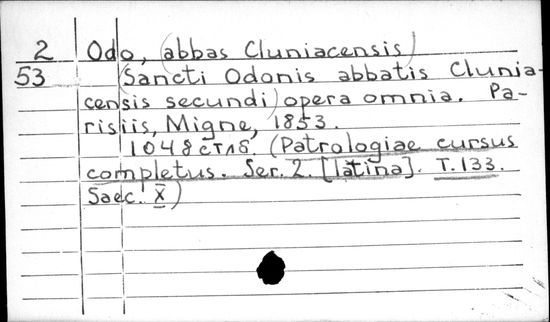 2 Odo, (abbas Cluniacensis)
53 (Sancti Odonis abbatis Clunia-
censis secundi) opera omnia. Pa-
risiis, Migne, 1853.
1048 стлб. (Patrologiae cursus
completus. Ser. 2. [latina]. T. 133.
Saec. X)